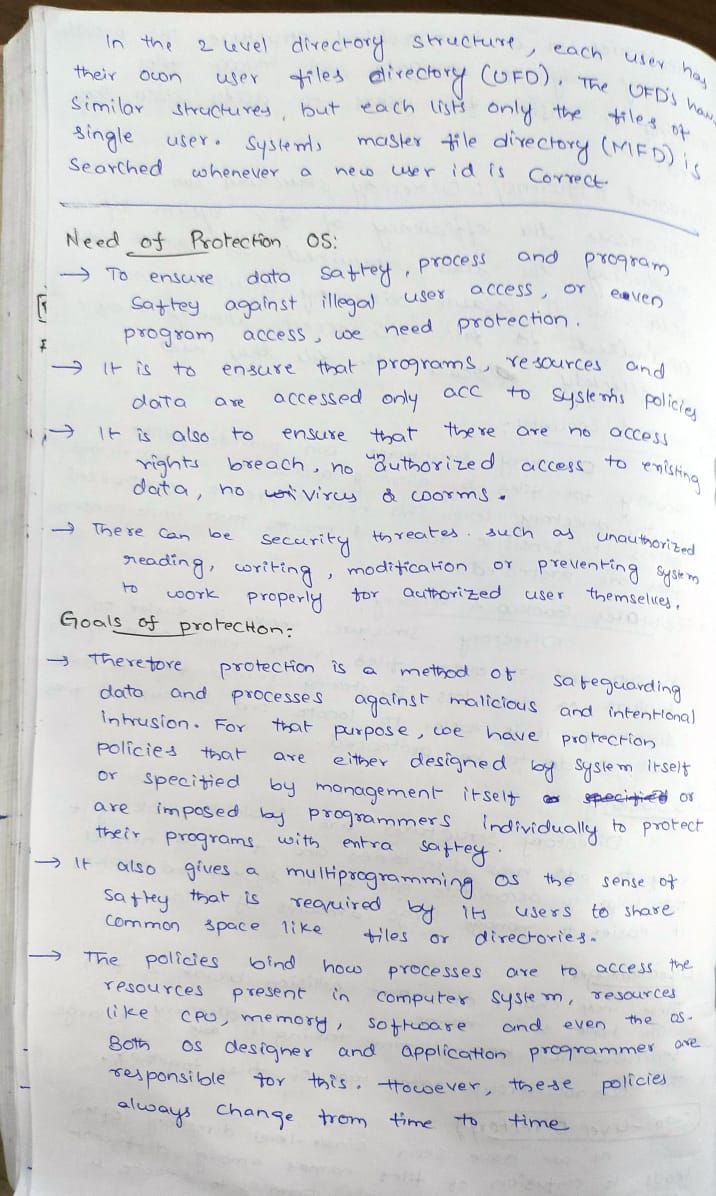 In the 2 level directory structure, each user has
their own user files directory (UFD). The UFD's have
similar structures, but each lists only the files of
single user. Systems master file directory (MFD) is
Searched whenever a new user id is Correct.
Need of Protection OS:
→ To ensure data saftey, process and program
saftey against illegal user access, or even
program access, we need protection.
→ It is to ensure that programs, resources and
data are accessed only acc to systems policies
→ It is also to ensure that there are no access
rights breach, no authorized access to existing
data, no virus & worms.
→ There can be security threates. such as unauthorized
reading, writing, modification or preventing system
to work properly for authorized user themselves.
Goals of protection:
→ Therefore protection is a method of safeguarding
data and processes against malicious and intentional
intrusion. For that purpose, we have protection
policies that are either designed by system itself
or specified by management itself or specified or
are imposed by programmers individually to protect
their programs with extra saftey.
→ It also gives a multiprogramming OS the sense of
saftey that is required by its users to share
common space like files or directories.
→ The policies bind how processes are to access the
resources present in computer system, resources
like CPU, memory, software and even the OS.
Both OS designer and application programmer are
responsible for this. However, these policies
always change from time to time